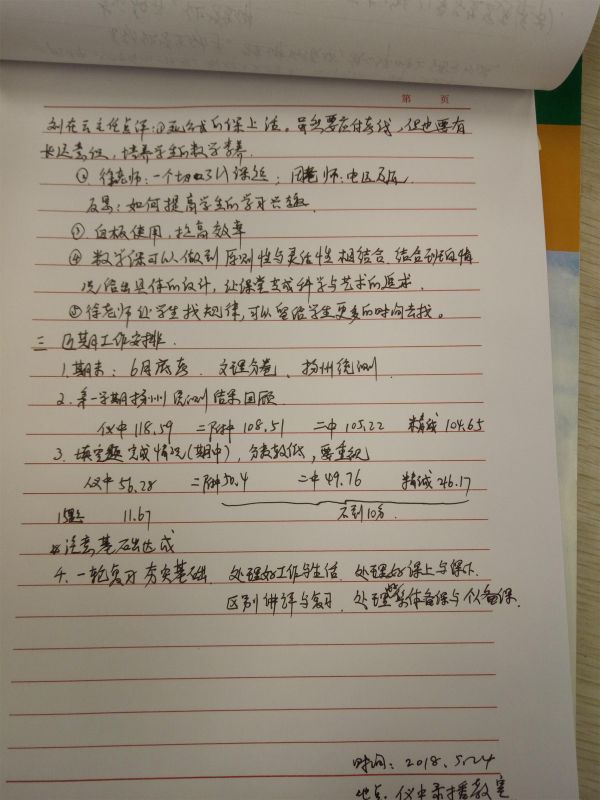 第 页
刘在云主任点评:①现在的课上活。虽然要应付考纲,但也要有
长远意识,培养学生的数学素养.
②徐老师:一个切口小课题;周老师:
反思:如何提高学生的学习兴趣.
③白板使用,提高效率
④数学课可以做到原则性与灵活性相结合.结合到班的情
况给出具体的设计,让课堂变成科学与艺术的追求.
⑤徐老师让学生找规律,可以留给学生更多的时间去找。
三 近期工作安排.
1.期末:6月底考.文理分卷、扬州统测.
2.第一学期扬州统测结果回顾.
仪中 118.59 二附中 108.51 二中 105.22 精诚 104.65
3.填空题完成情况(期中),分数较低,要重视
仪中 56.28 二附中 50.4 二中 49.76 精诚 246.17
11.67 不到10分.
4.一轮复习夯实基础.处理好工作与生活 处理好课上与课下.
区别讲评与复习.处理好集体备课与个人备课.
时间:2018.5.24
地点:仪中录播教室